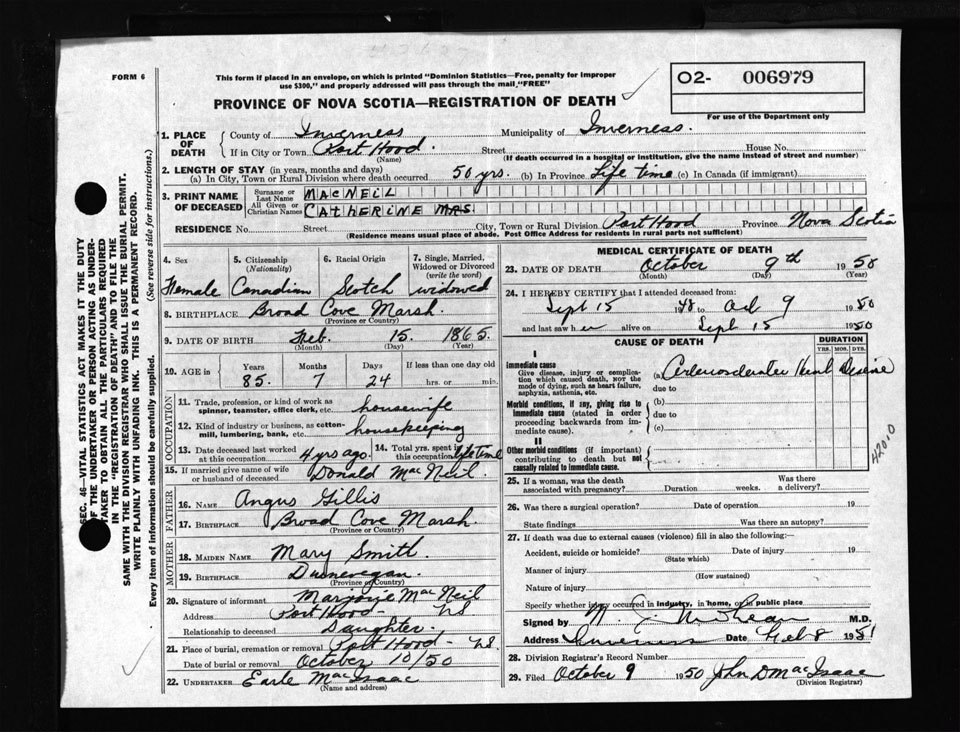 FORM 6
This form if placed in an envelope, on which is printed "Dominion Statistics—Free, penalty for improper
use $300," and properly addressed will pass through the mail "FREE"
O2- 006979
For use of the Department only
PROVINCE OF NOVA SCOTIA—REGISTRATION OF DEATH
1. PLACE OF DEATH
County of Inverness Municipality of Inverness.
If in City or Town Port Hood. Street House No.
(Name) (If death occurred in a hospital or institution, give the name instead of street and number)
2. LENGTH OF STAY (in years, months and days)
(a) In City, Town or Rural Division where death occurred 50 yrs. (b) In Province Life time (c) In Canada (if immigrant)
3. PRINT NAME OF DECEASED
Surname or Last Name MACNEIL
All Given or Christian Names CATHERINE MRS.
RESIDENCE No. Street City, Town or Rural Division Port Hood Province Nova Scotia
(Residence means usual place of abode. Post Office Address for residents in rural parts not sufficient)
4. Sex Female
5. Citizenship (Nationality) Canadian
6. Racial Origin Scotch
7. Single, Married, Widowed or Divorced (write the word) widowed
8. BIRTHPLACE Broad Cove Marsh.
(Province or Country)
9. DATE OF BIRTH Feb. 15. 1865.
(Month) (Day) (Year)
10. AGE in Years Months Days If less than one day old
85. 7 24 hrs. or min.
OCCUPATION
11. Trade, profession, or kind of work as spinner, teamster, office clerk, etc. housewife
12. Kind of industry or business, as cotton-mill, lumbering, bank, etc. housekeeping
13. Date deceased last worked at this occupation 4 yrs ago.
14. Total yrs. spent in this occupation lifetime
15. If married give name of wife or husband of deceased Donald Mac Neil
FATHER
16. NAME Angus Gillis
17. BIRTHPLACE Broad Cove Marsh.
(Province or Country)
MOTHER
18. MAIDEN NAME Mary Smith.
19. BIRTHPLACE Dunvegan.
(Province or Country)
20. Signature of informant Marjorie Mac Neil
Address Port Hood - NS
Relationship to deceased Daughter.
21. Place of burial, cremation or removal Port Hood - NS.
Date of burial or removal October 10/50
22. UNDERTAKER Earle MacIsaac
(Name and address)
MEDICAL CERTIFICATE OF DEATH
23. DATE OF DEATH October 9th 1950
(Month) (Day) (Year)
24. I HEREBY CERTIFY that I attended deceased from:
Sept 15 1948 to Oct 9 1950
and last saw her alive on Sept 15 1950
CAUSE OF DEATH
DURATION
YRS. MOS. DYS.
I
Immediate cause
Give disease, injury or complication which caused death, NOT the mode of dying, such as heart failure, asphyxia, asthenia, etc.
(a) Heart Disease
due to
Morbid conditions, if any, giving rise to immediate cause (stated in order proceeding backwards from immediate cause).
(b)
due to
(c)
II
Other morbid conditions (if important) contributing to death but not causally related to immediate cause.
42010
25. If a woman, was the death associated with pregnancy? Duration weeks. Was there a delivery?
26. Was there a surgical operation? Date of operation 19
State findings Was there an autopsy?
27. If death was due to external causes (violence) fill in also the following:—
Accident, suicide or homicide? Date of injury 19
(State which)
Manner of injury
(How sustained)
Nature of injury
Specify whether injury occurred in industry, in home, or in public place
Signed by M.D.
Address Inverness Date Feb 8 1951
28. Division Registrar's Record Number
29. Filed October 9 1950 John D MacIsaac
(Division Registrar)
SEC. 46—VITAL STATISTICS ACT MAKES IT THE DUTY
OF THE UNDERTAKER OR PERSON ACTING AS UNDER-
TAKER TO OBTAIN ALL THE PARTICULARS REQUIRED
IN THE "REGISTRATION OF DEATH" AND TO FILE THE
SAME WITH THE DIVISION REGISTRAR WHO SHALL ISSUE THE BURIAL PERMIT.
WRITE PLAINLY WITH UNFADING INK. THIS IS A PERMANENT RECORD.
Every item of information should be carefully supplied. (See reverse side for instructions.)